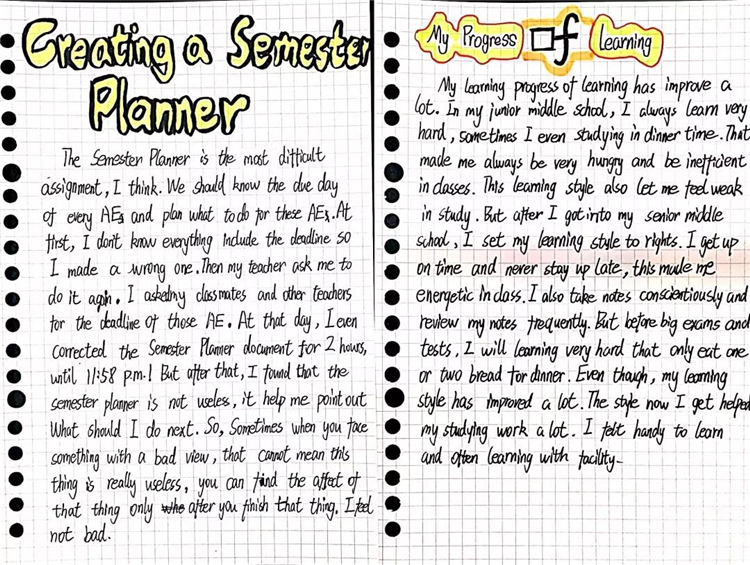 Creating a Semester
Planner
The Semester Planner is the most difficult
assignment, I think. We should know the due day
of every AEs and plan what to do for these AEs. At
first, I don't know everything Include the deadline so
I made a wrong one. Then my teacher ask me to
do it again. I asked my classmates and other teachers
for the deadline of those AE. At that day, I even
corrected the Semester Planner document for 2 hours,
until 11:58 p.m.! But after that, I found that the
semester planner is not useless, it help me point out
What should I do next. So, Sometimes when you face
something with a bad view, that cannot mean this
thing is really useless, you can find the affect of
that thing only after you finish that thing. I feel
not bad.
My Progress of Learning
My learning progress of learning has improve a
lot. In my junior middle school, I always learn very
hard, sometimes I even studying in dinner time. That
made me always be very hungry and be inefficient
in classes. This learning style also let me feel weak
in study. But after I got into my senior middle
school, I set my learning style to rights. I get up
on time and never stay up late, this made me
energetic in class. I also take notes conscientiously and
review my notes frequently. But before big exams and
tests, I will learning very hard that only eat one
or two bread for dinner. Even though, my learning
style has improved a lot. The style now I get helped
my studying work a lot. I felt handy to learn
and often learning with facility.